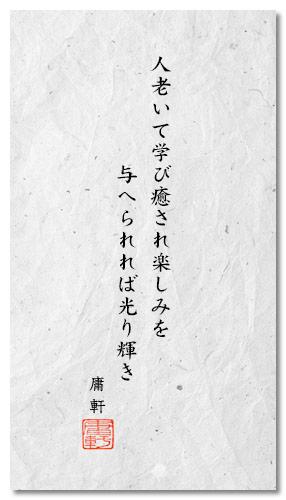 人老いて学び癒され楽しみを
与へられれば光り輝き
庸軒
庸軒